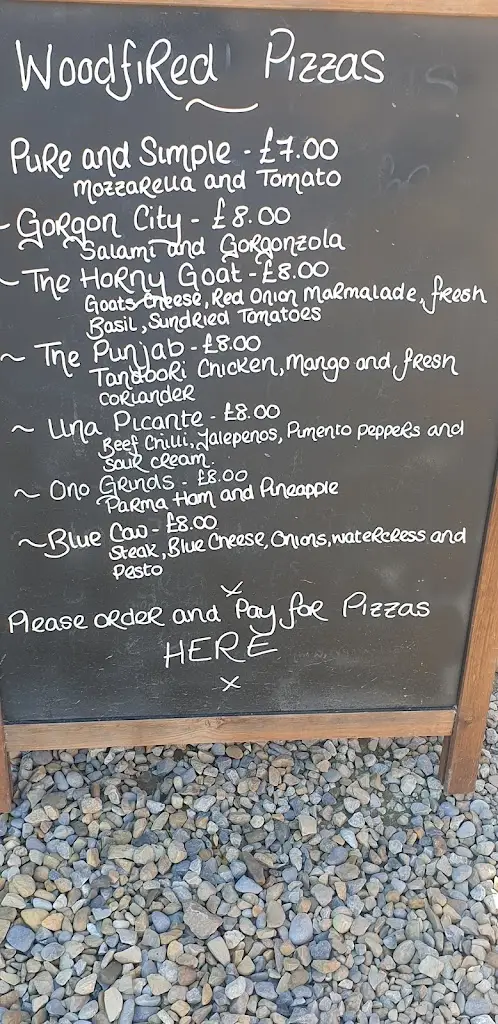 Woodfired Pizzas
Pure and Simple - £7.00
Mozzarella and Tomato
- Gorgon City - £8.00
Salami and Gorgonzola
~ The Horny Goat - £8.00
Goats Cheese, Red Onion Marmalade, fresh
Basil, Sundried Tomatoes
~ The Punjab - £8.00
Tandoori Chicken, Mango and fresh
coriander
~ Una Picante - £8.00
Beef Chilli, Jalepenos, Pimento peppers and
sour cream.
~ Ono Grinds - £8.00
Parma Ham and Pineapple
~ Blue Cow - £8.00
Steak, Blue Cheese, Onions, watercress and
Pesto
x
Please order and Pay for Pizzas
HERE
x